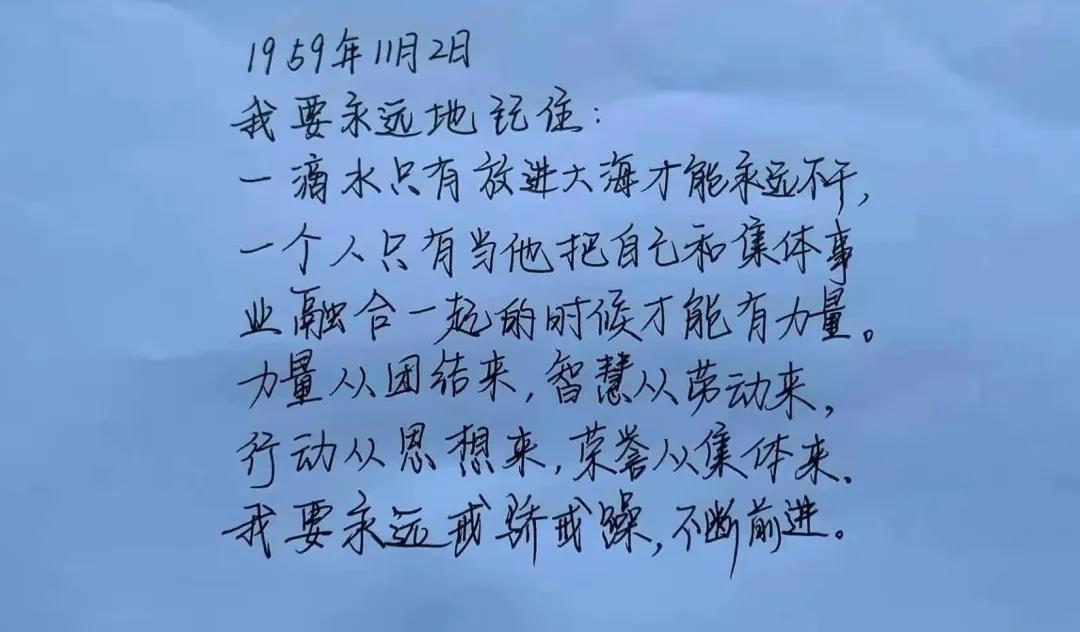 1959年11月2日
我要永远地记住:
一滴水只有放进大海才能永远不干,
一个人只有当他把自己和集体事
业融合一起的时候才能有力量。
力量从团结来,智慧从劳动来,
行动从思想来,荣誉从集体来、
我要永远戒骄戒躁,不断前进。